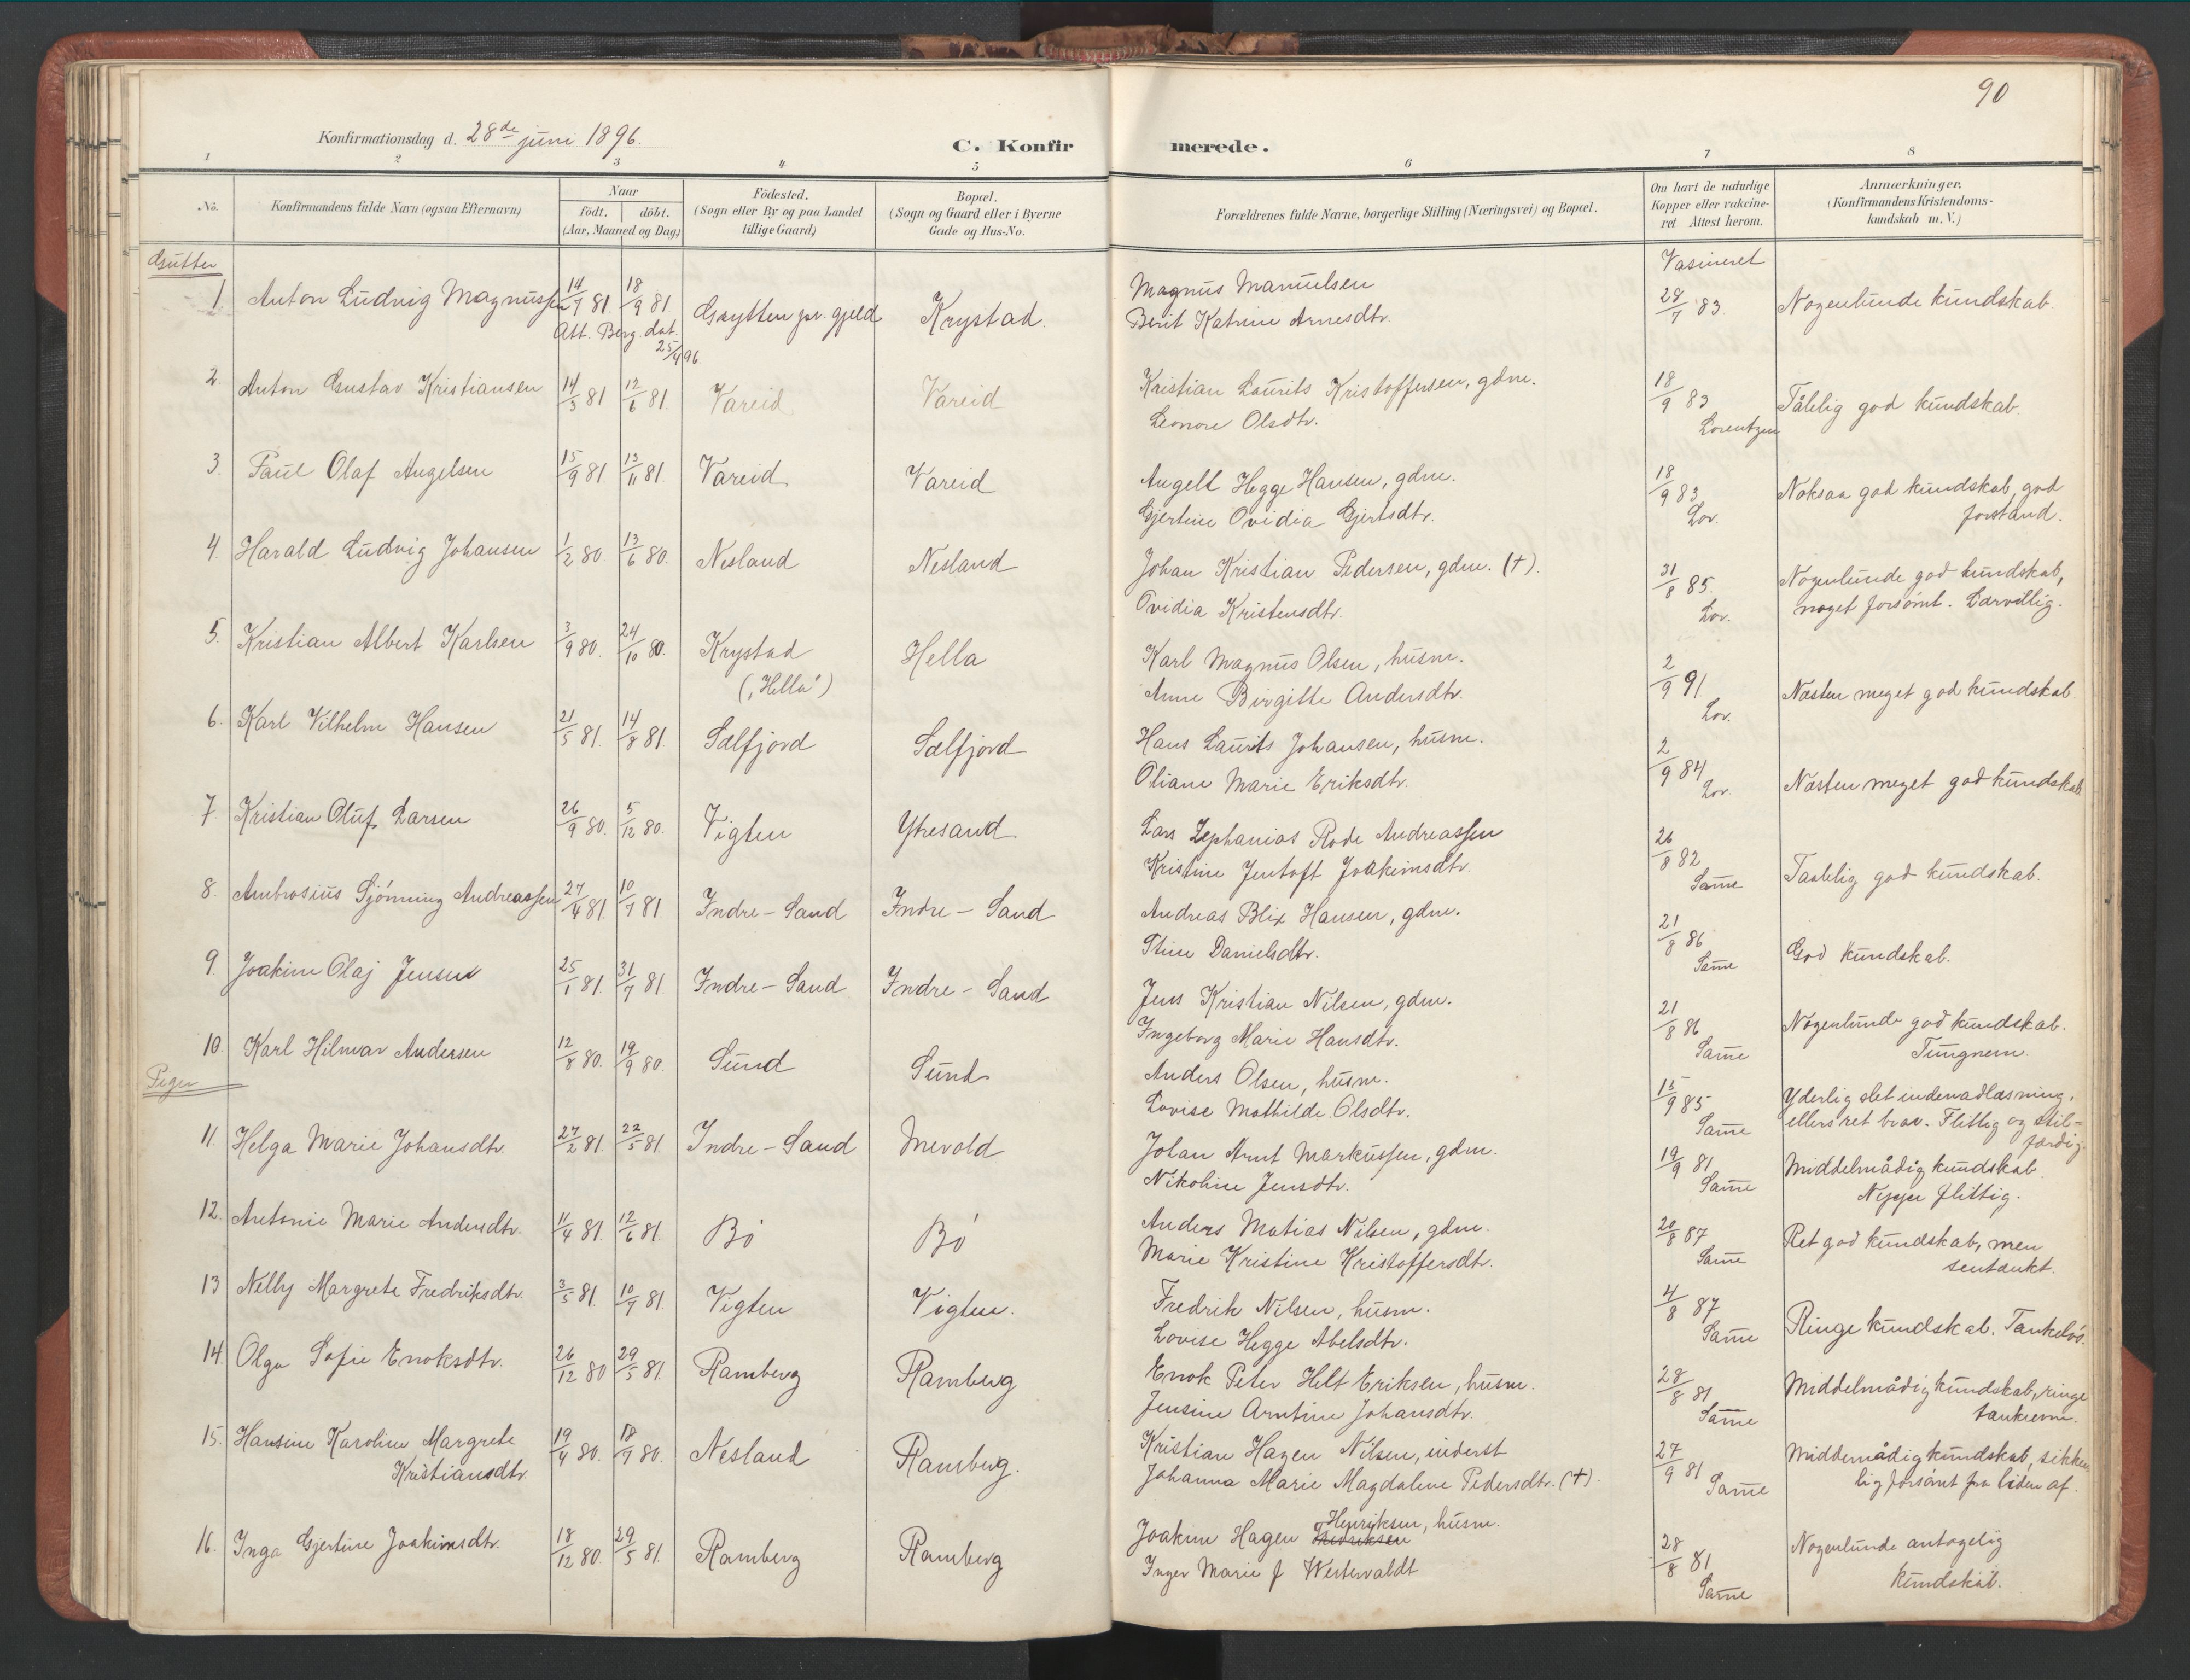 90
Konfirmationsdag d. 28de juni 1896.
C. Konfirmerede.
1 2 3 4 5 6 7 8
No.
Konfirmandens fulde Navn (ogsaa Efternavn)
Naar
födt. döbt.
(Aar, Maaned og Dag)
Födested.
(Sogn eller By og paa Landet
tillige Gaard)
Bopæl.
(Sogn og Gaard eller i Byerne
Gade og Hus-No.
Forældrenes fulde Navne, borgerlige Stilling (Næringsvei) og Bopæl.
Om havt de naturlige
Kopper eller vakcine-
ret Attest herom.
Anmærkninger.
(Konfirmandens Kristendoms-
kundskab m. V.)
Gutter
Vasineret
1. Anton Ludvig Magnussen 14/7 81. 18/9 81 pr. gjeld Krystad.
Att. Berg. dat. 25/4 96
Magnus Manuelsen
Berit Katrine Arnesdtr.
28/7 83. Nogenlunde kundskab.
2. Anton Gustav Kristiansen 14/3 81 12/6 81. Vareid Vareid
Kristian Laurits Kristoffersen, gdm.
Leonore Olsdtr.
18/9 83 Lorentzen Tålelig god kundskab.
3. Paul Olaf Angelsen 15/9 81 13/11 81. Vareid Vareid
Angell Hegge Hansen, gdm.
Gjertine Ovidia Gjertsdtr.
18/9 83 Lor. Noksaa god kundskab, god
forstand.
4. Harald Ludvig Johansen 1/2 80. 13/6 80. Nesland Nesland
Johan Kristian Pedersen, gdm. (†).
Ovidia Kristensdtr.
31/8 85. Lor. Nogenlunde god kundskab,
noget forsömt. Lærvillig.
5. Kristian Albert Karlsen 3/9 80. 24/10 80. Krystad Hella
("Hella")
Karl Magnus Olsen, husm.
Anne Birgitte Andersdtr.
2/9 91. Lor. Næsten meget god kundskab
6. Karl Vilhelm Hansen 21/5 81. 14/8 81. Selfjord Selfjord
Hans Laurits Johansen, husm.
Oliane Marie Eriksdtr.
2/9 84 Lor. Næsten meget god kundskab.
7. Kristian Oluf Larsen 26/9 80. 5/12 80. Vigten Ytresand
Lars Zephanias Rode Andreassen
Kristine Jentoft Joakimsdtr.
26/8 82 Samme Taalelig god kundskab.
8. Ambrosius Sjönning Andreassen 27/4 81. 10/7 81. Indre - Sand Indre - Sand
Andreas Blix Hansen, gdm.
Stine Danielsdtr.
21/8 86 Samme God kundskab.
9. Joakim Olaj Jensen 25/1 81. 31/7 81. Indre - Sand Indre - Sand
Jens Kristian Nilsen, gdm.
Ingeborg Marie Hansdtr.
21/8 86 Samme Nogenlunde god kundskab.
Tungnem.
10. Karl Hilmar Andersen 12/8 80. 19/9 80. Sund Sund
Anders Olsen, husm.
Lovise Mathilde Olsdtr.
15/9 85 Samme Yderlig slet indenadlæsning,
ellers ret brav. Flittig og stil-
færdig.
Piger
11. Helga Marie Johansdtr. 27/2 81. 22/5 81. Indre - Sand Mevold
Johan Arnt Markussen, gdm.
Nikoline Jensdtr.
19/9 81 Samme Middelmådig kundskab.
Neppe flittig.
12. Antonie Marie Andersdtr. 11/4 81. 12/6 81. Bö Bö
Anders Matias Nilsen, gdm.
Marie Kristine Kristoffersdtr.
20/8 87 Samme Ret god kundskab, men
sentænkt.
13 Nelly Margrete Fredriksdtr. 3/5 81. 10/7 81. Vigten Vigten.
Fredrik Nilsen, husm.
Lovise Hegge Abelsdtr.
4/8 87 Samme Ringe kundskab. Tankelös.
14. Olga Sofie Enoksdtr. 26/12 80 29/5 81. Ramberg Ramberg
Enok Peter Helt Eriksen, husm.
Jensine Arntine Johansdtr.
28/8 81 Samme Middelmådig kundskab, ringe
tankeevne.
15. Hansine Karoline Margrete 19/4 80. 18/7 80. Nesland Ramberg.
Kristiansdtr.
Kristian Hagen Nilsen, inderst
Johanna Marie Magdalene Pedersdtr. (†).
27/9 81 Samme Middemådig kundskab,
lig forsömt fra liden af.
16. Inga Gjertine Joakimsdtr. 18/12 80. 29/5 81. Ramberg Ramberg
Henriksen, husm.
Joakim Hagen Fredriksen
Inger Marie J Westervaldt
28/8 81 Samme Nogenlunde antagelig
kundskab.